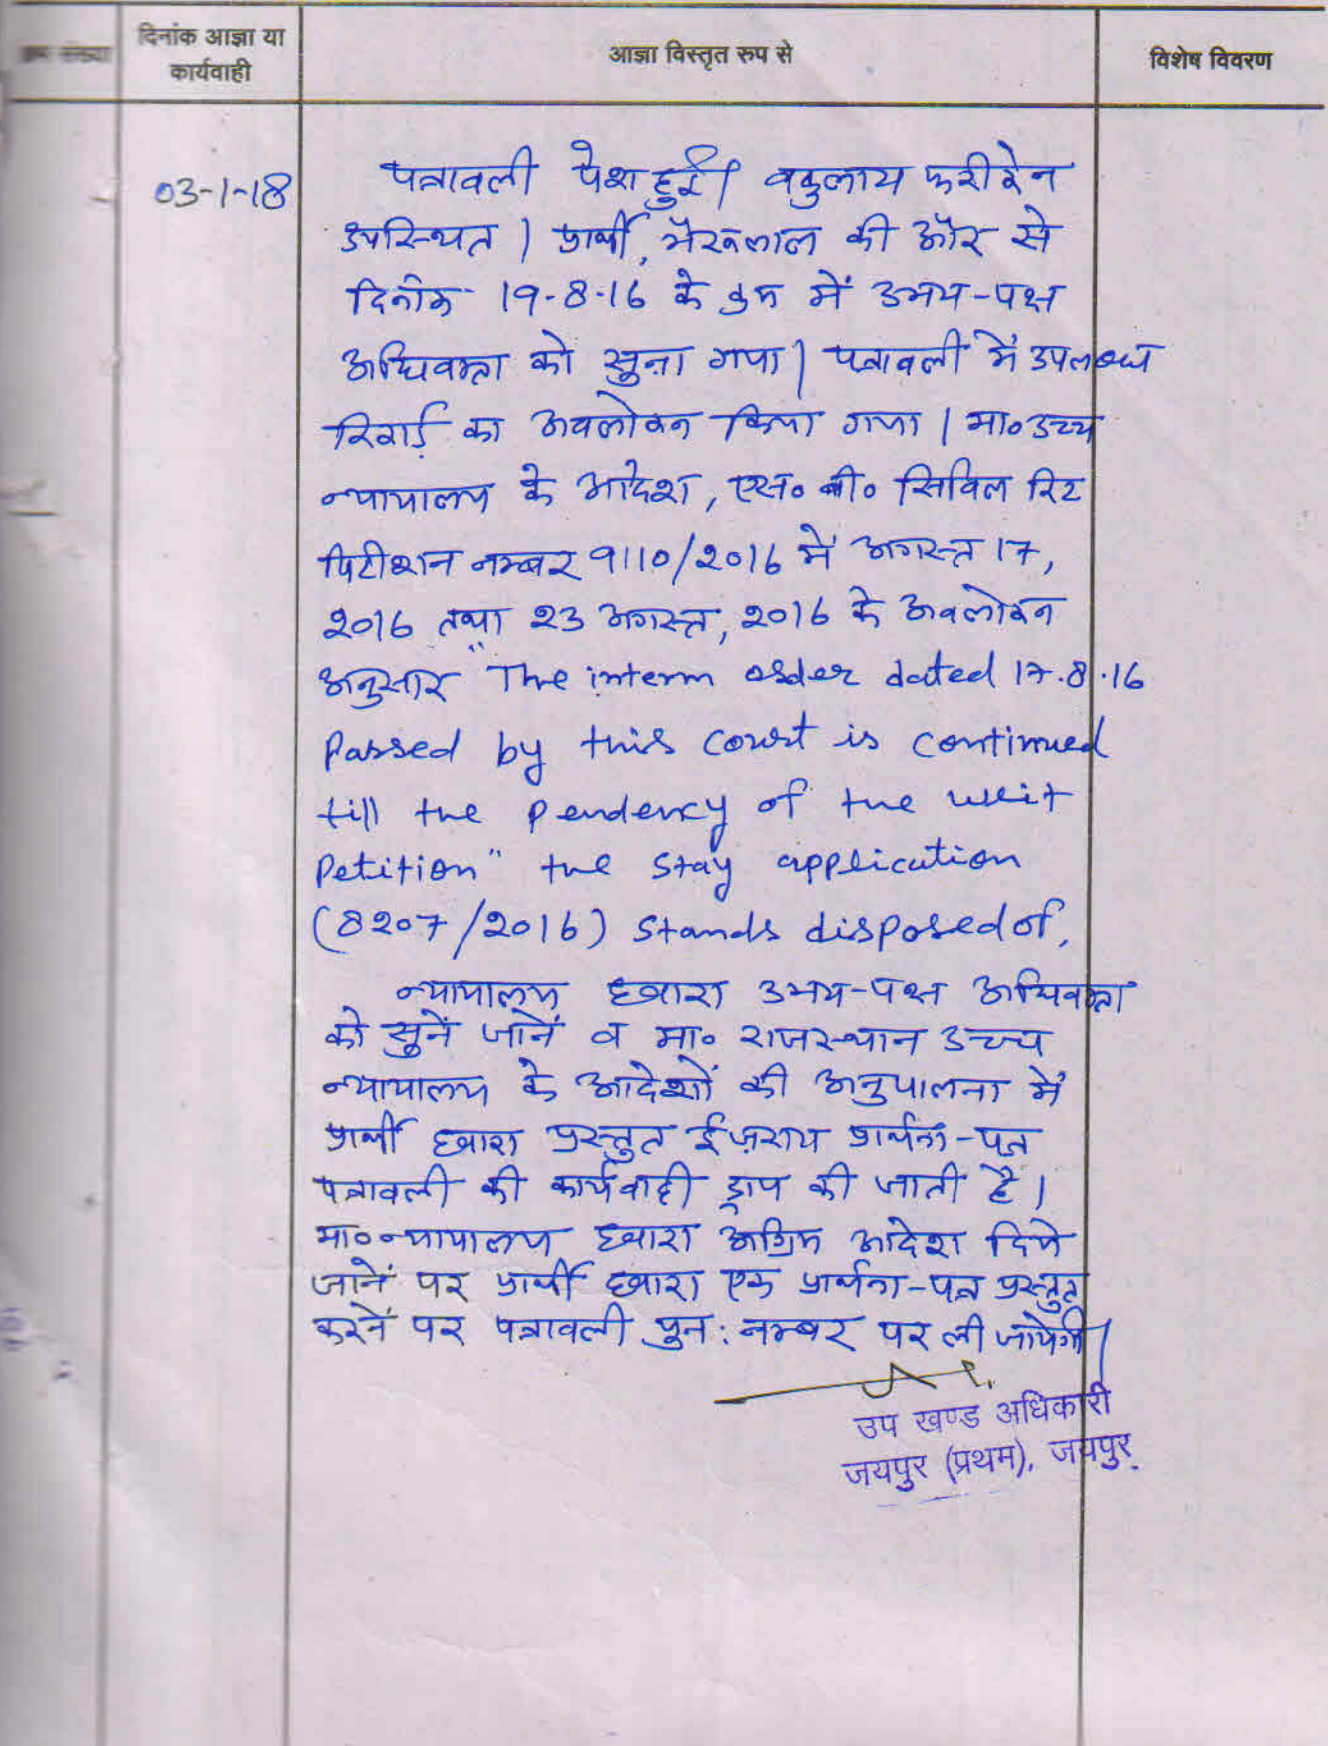 दिनांक आज्ञा या
कार्यवाही
आज्ञा विस्तृत रुप से
विशेष विवरण
03-1-18
पत्रावली पेश हुई। वकुलाय फरीकेन
उपस्थित। प्रार्थी, भैरूलाल की और से
दिनांक 19-8-16 के क्रम में उभय-पक्ष
अधिवक्ता को सुना गया। पत्रावली में उपलब्ध
रिकार्ड का अवलोकन किया गया। मा० उच्च
न्यायालय के आदेश, एस० बी० सिविल रिट
पिटीशन नम्बर 9110/2016 में अगस्त 17,
2016 तथा 23 अगस्त, 2016 के अवलोकन
अनुसार "The interm order dated 17.8.16
Passed by this court is continued
till the pendency of the writ
Petition" the stay application
(8207/2016) stands disposed of,
न्यायालय द्वारा उभय-पक्ष अधिवक्ता
को सुनें जानें व मा० राजस्थान उच्च
न्यायालय के आदेशों की अनुपालना में
प्रार्थी द्वारा प्रस्तुत ईज़राय प्रार्थना-पत्र
पत्रावली की कार्यवाही ड्राप की जाती है।
मा० न्यायालय द्वारा अग्रिम आदेश दिये
जानें पर प्रार्थी द्वारा एक प्रार्थना-पत्र प्रस्तुत
करनें पर पत्रावली पुन: नम्बर पर ली जायेगी।
उप खण्ड अधिकारी
जयपुर (प्रथम), जयपुर